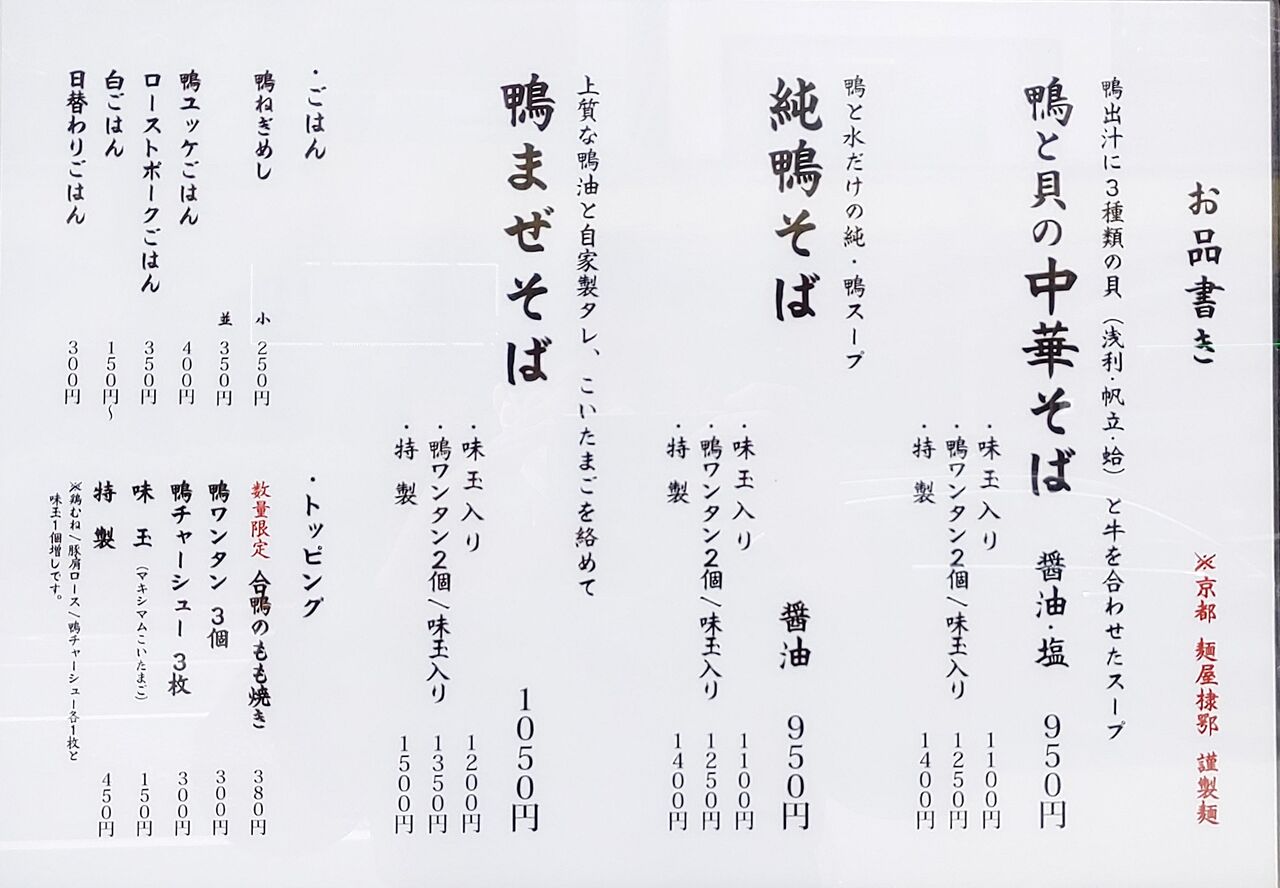 お品書き
※京都 麺屋棣鄂 謹製麺
鴨出汁に3種類の貝（浅利・帆立・蛤）と牛を合わせたスープ
鴨と貝の中華そば 醤油・塩 950円
・味玉入り 1100円
・鴨ワンタン2個／味玉入り 1250円
・特製 1400円
鴨と水だけの純・鴨スープ
純鴨そば 醤油 950円
・味玉入り 1100円
・鴨ワンタン2個／味玉入り 1250円
・特製 1400円
上質な鴨油と自家製タレ、こいたまごを絡めて
鴨まぜそば 1050円
・味玉入り 1200円
・鴨ワンタン2個／味玉入り 1350円
・特製 1500円
・ごはん
鴨ねぎめし 小 250円
並 350円
鴨ユッケごはん 400円
ローストポークごはん 350円
白ごはん 150円～
日替わりごはん 300円
・トッピング
数量限定 合鴨のもも焼き 380円
鴨ワンタン 3個 300円
鴨チャーシュー 3枚 300円
味玉（マキシマムこいたまご） 150円
特製 450円
※鶏むね／豚肩ロース／鴨チャーシュー各1枚と
味玉1個増しです。